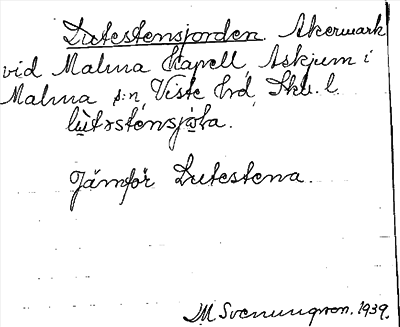 Lutestensjorden. Åkermark
vid Malma Kapell, Askjum i
Malma s:n, Viste hrd, Skb. l.
lùtəstensjòla.
Jämför Lutestena.
M Svenungsson. 1939.